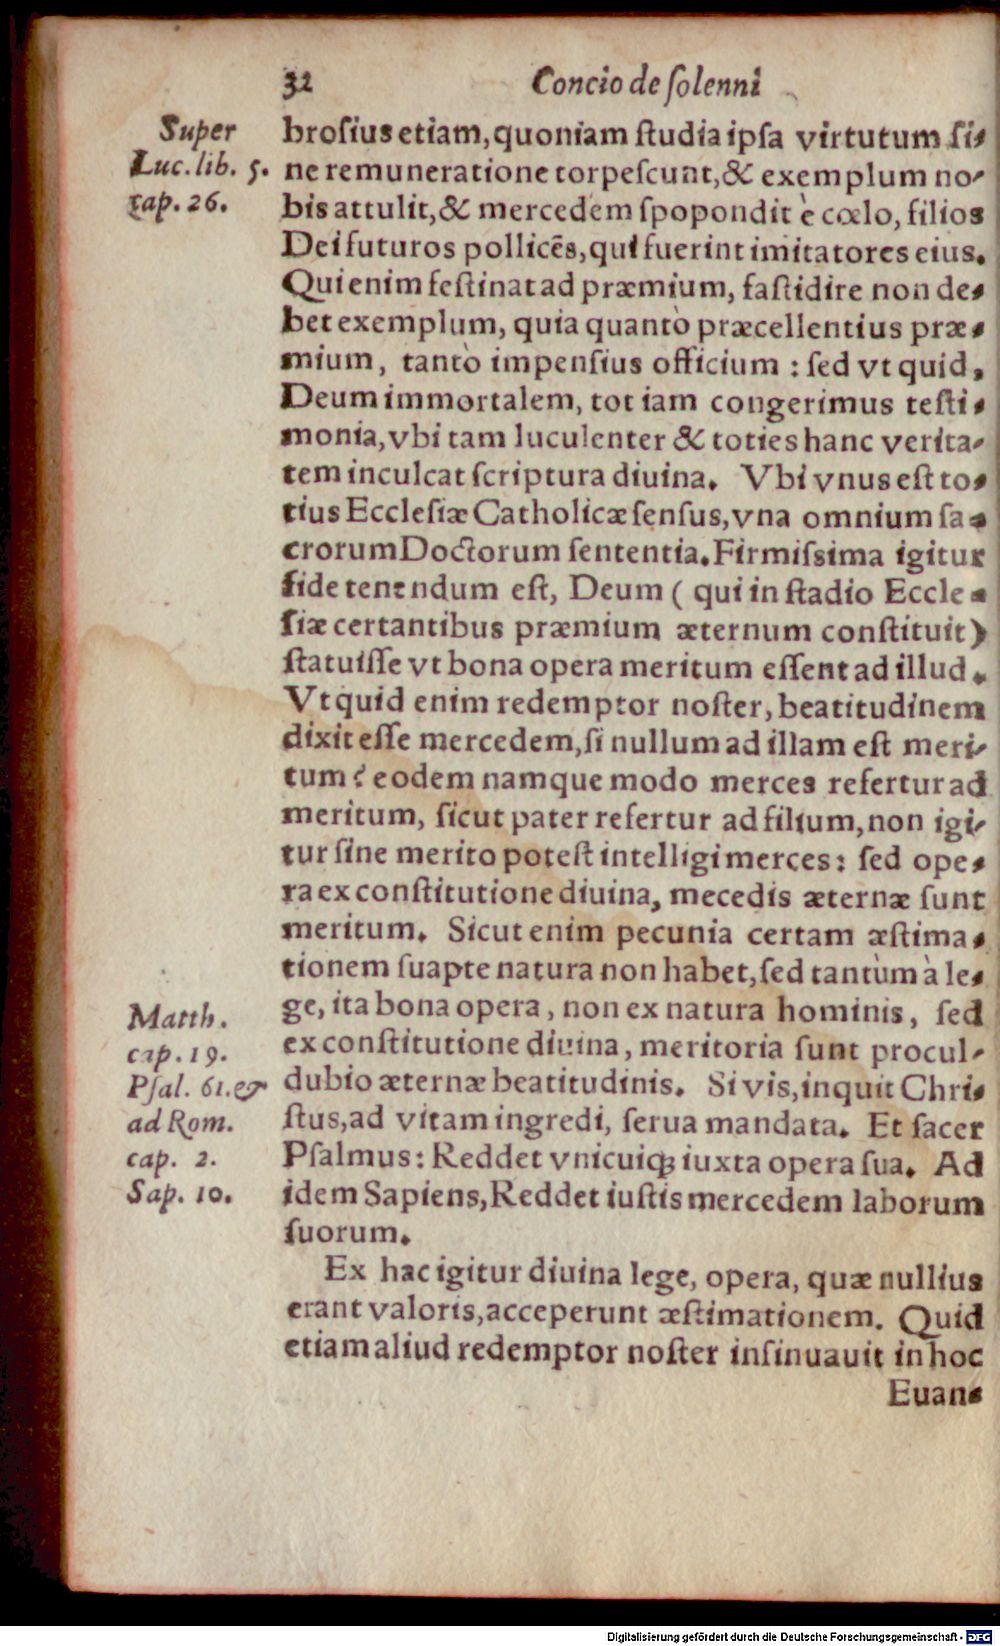 32 Concio de ſolenni
Super
Luc. lib. 5.
cap. 26.
broſius etiam, quoniam ſtudia ipſa virtutum ſi-
ne remuneratione torpeſcunt, & exemplum no-
bis attulit, & mercedem ſpopondit è cœlo, filios
Dei futuros pollicēs, qui fuerint imitatores eius.
Qui enim feſtinat ad præmium, faſtidire non de-
bet exemplum, quia quantò præcellentius præ-
mium, tantò impenſius officium : ſed vt quid,
Deum immortalem, tot iam congerimus teſti-
monia, vbi tam luculenter & toties hanc verita-
tem inculcat ſcriptura diuina. Vbi vnus eſt to-
tius Eccleſiæ Catholicæ ſenſus, vna omnium ſa-
crorum Doctorum ſententia. Firmiſsima igitur
fide tenendum eſt, Deum ( qui in ſtadio Eccle-
ſiæ certantibus præmium æternum conſtituit)
ſtatuiſſe vt bona opera meritum eſſent ad illud.
Vt quid enim redemptor noſter, beatitudinem
dixit eſſe mercedem, ſi nullum ad illam eſt meri-
tum? eodem namque modo merces refertur ad
meritum, ſicut pater refertur ad filium, non igi-
tur ſine merito poteſt intelligi merces: ſed ope-
ra ex conſtitutione diuina, mecedis æternæ ſunt
meritum. Sicut enim pecunia certam æſtima-
tionem ſuapte natura non habet, ſed tantùm à le-
ge, ita bona opera, non ex natura hominis, ſed
ex conſtitutione diuina, meritoria ſunt procul-
dubio æternæ beatitudinis. Si vis, inquit Chri-
ſtus, ad vitam ingredi, ſerua mandata. Et ſacer
Pſalmus: Reddet vnicuiqꝫ iuxta opera ſua. Ad
idem Sapiens, Reddet iuſtis mercedem laborum
ſuorum.
Matth.
cap. 19.
Pſal. 61. &
ad Rom.
cap. 2.
Sap. 10.
Ex hac igitur diuina lege, opera, quæ nullius
erant valoris, acceperunt æſtimationem. Quid
etiam aliud redemptor noſter inſinuauit in hoc
Euan-
Digitalisierung gefördert durch die Deutsche Forschungsgemeinschaft - DFG